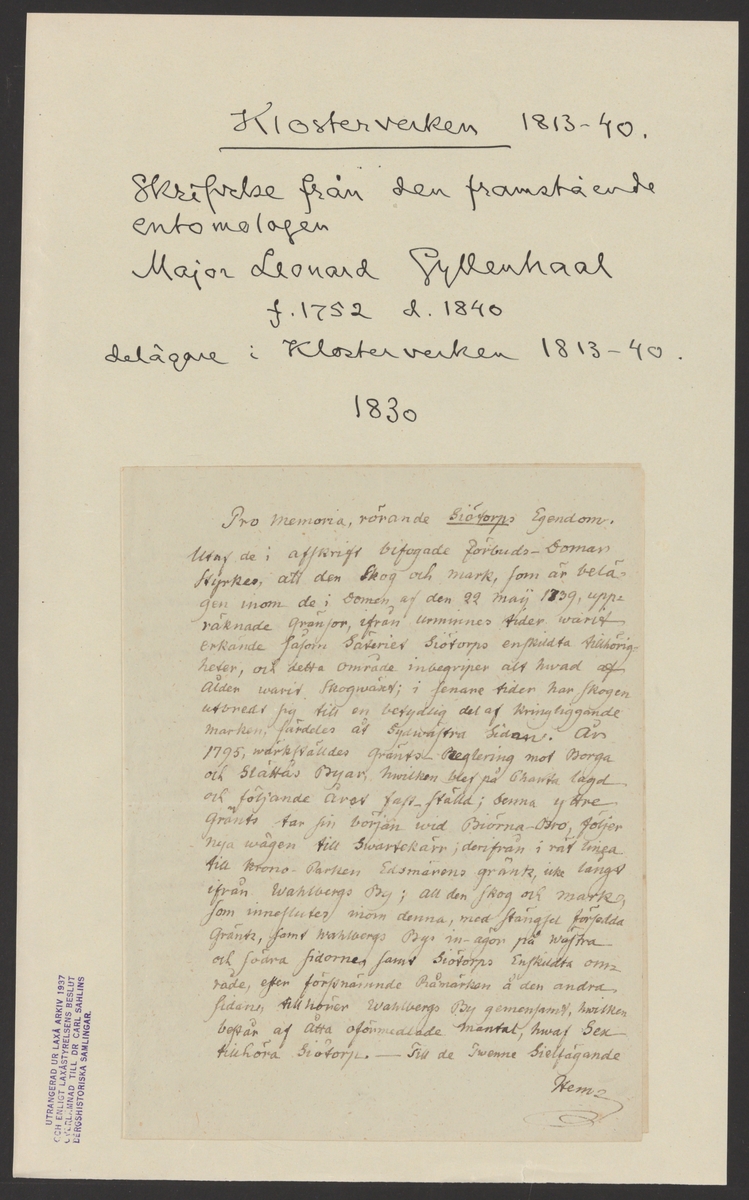 Klosterverken 1813-40.
Skrifvelse från den framstående
entomologen
Major Leonard Gyllenhaal
f. 1752 d. 1840
delägare i Klosterverken 1813-40.
1830
Pro Memoria, rörande Siötorps Egendom.
Utaf de i afskrift bifogade Förbuds-Domar
styrkes, att den Skog och mark, som är belä-
gen inom de i Domen af den 22 maij 1739, upp-
räknade gränsor, ifrån urminnes tider warit
erkände såsom Säteriet Siötorps enskildta tillhörig-
heter, och detta område inbegriper alt hwad af
Ålder warit Skogwäxt; i senare tider har skogen
utbredt sig till en betydlig del af kringliggande
marken, särdeles åt Sydwästra Sidan. År
1795, wärkställdes Gränts-Reglering mot Borga
och Slättås Byar, hwilken blef på Charta lagd
och följande Året fast-ställd; denna yttre
Gränts tar sin början wid Biörna-Bro, följer
nya wägen till Swartekärr; derifrån i rät linea
till Krono-Parken Edsmärens gränts, icke långt
ifrån Wahlbergs By; All den skog och mark,
som inneslutes inom denna, med stängsel försedda
Gränts, samt Wahlbergs Bys in-ägor på wästra
och södra sidorne, samt Siötorps Enskildta om-
råde, efter förstnämnde Råmärken å den andra
sidan, tillhörer Wahlbergs By gemensamt, hwilken
består af Åtta oförmedlade mantal, hwaf Sex
tillhöra Siötorp. — Till de Twenne Sielfägande
Hem-
UTRANGERAD UR LAXÅ ARKIV 1937
OCH ENLIGT LAXÅSTYRELSENS BESLUT
ÖVERLÄMNAD TILL DR CARL SAHLINS
BERGSHISTORISKA SAMLINGAR.